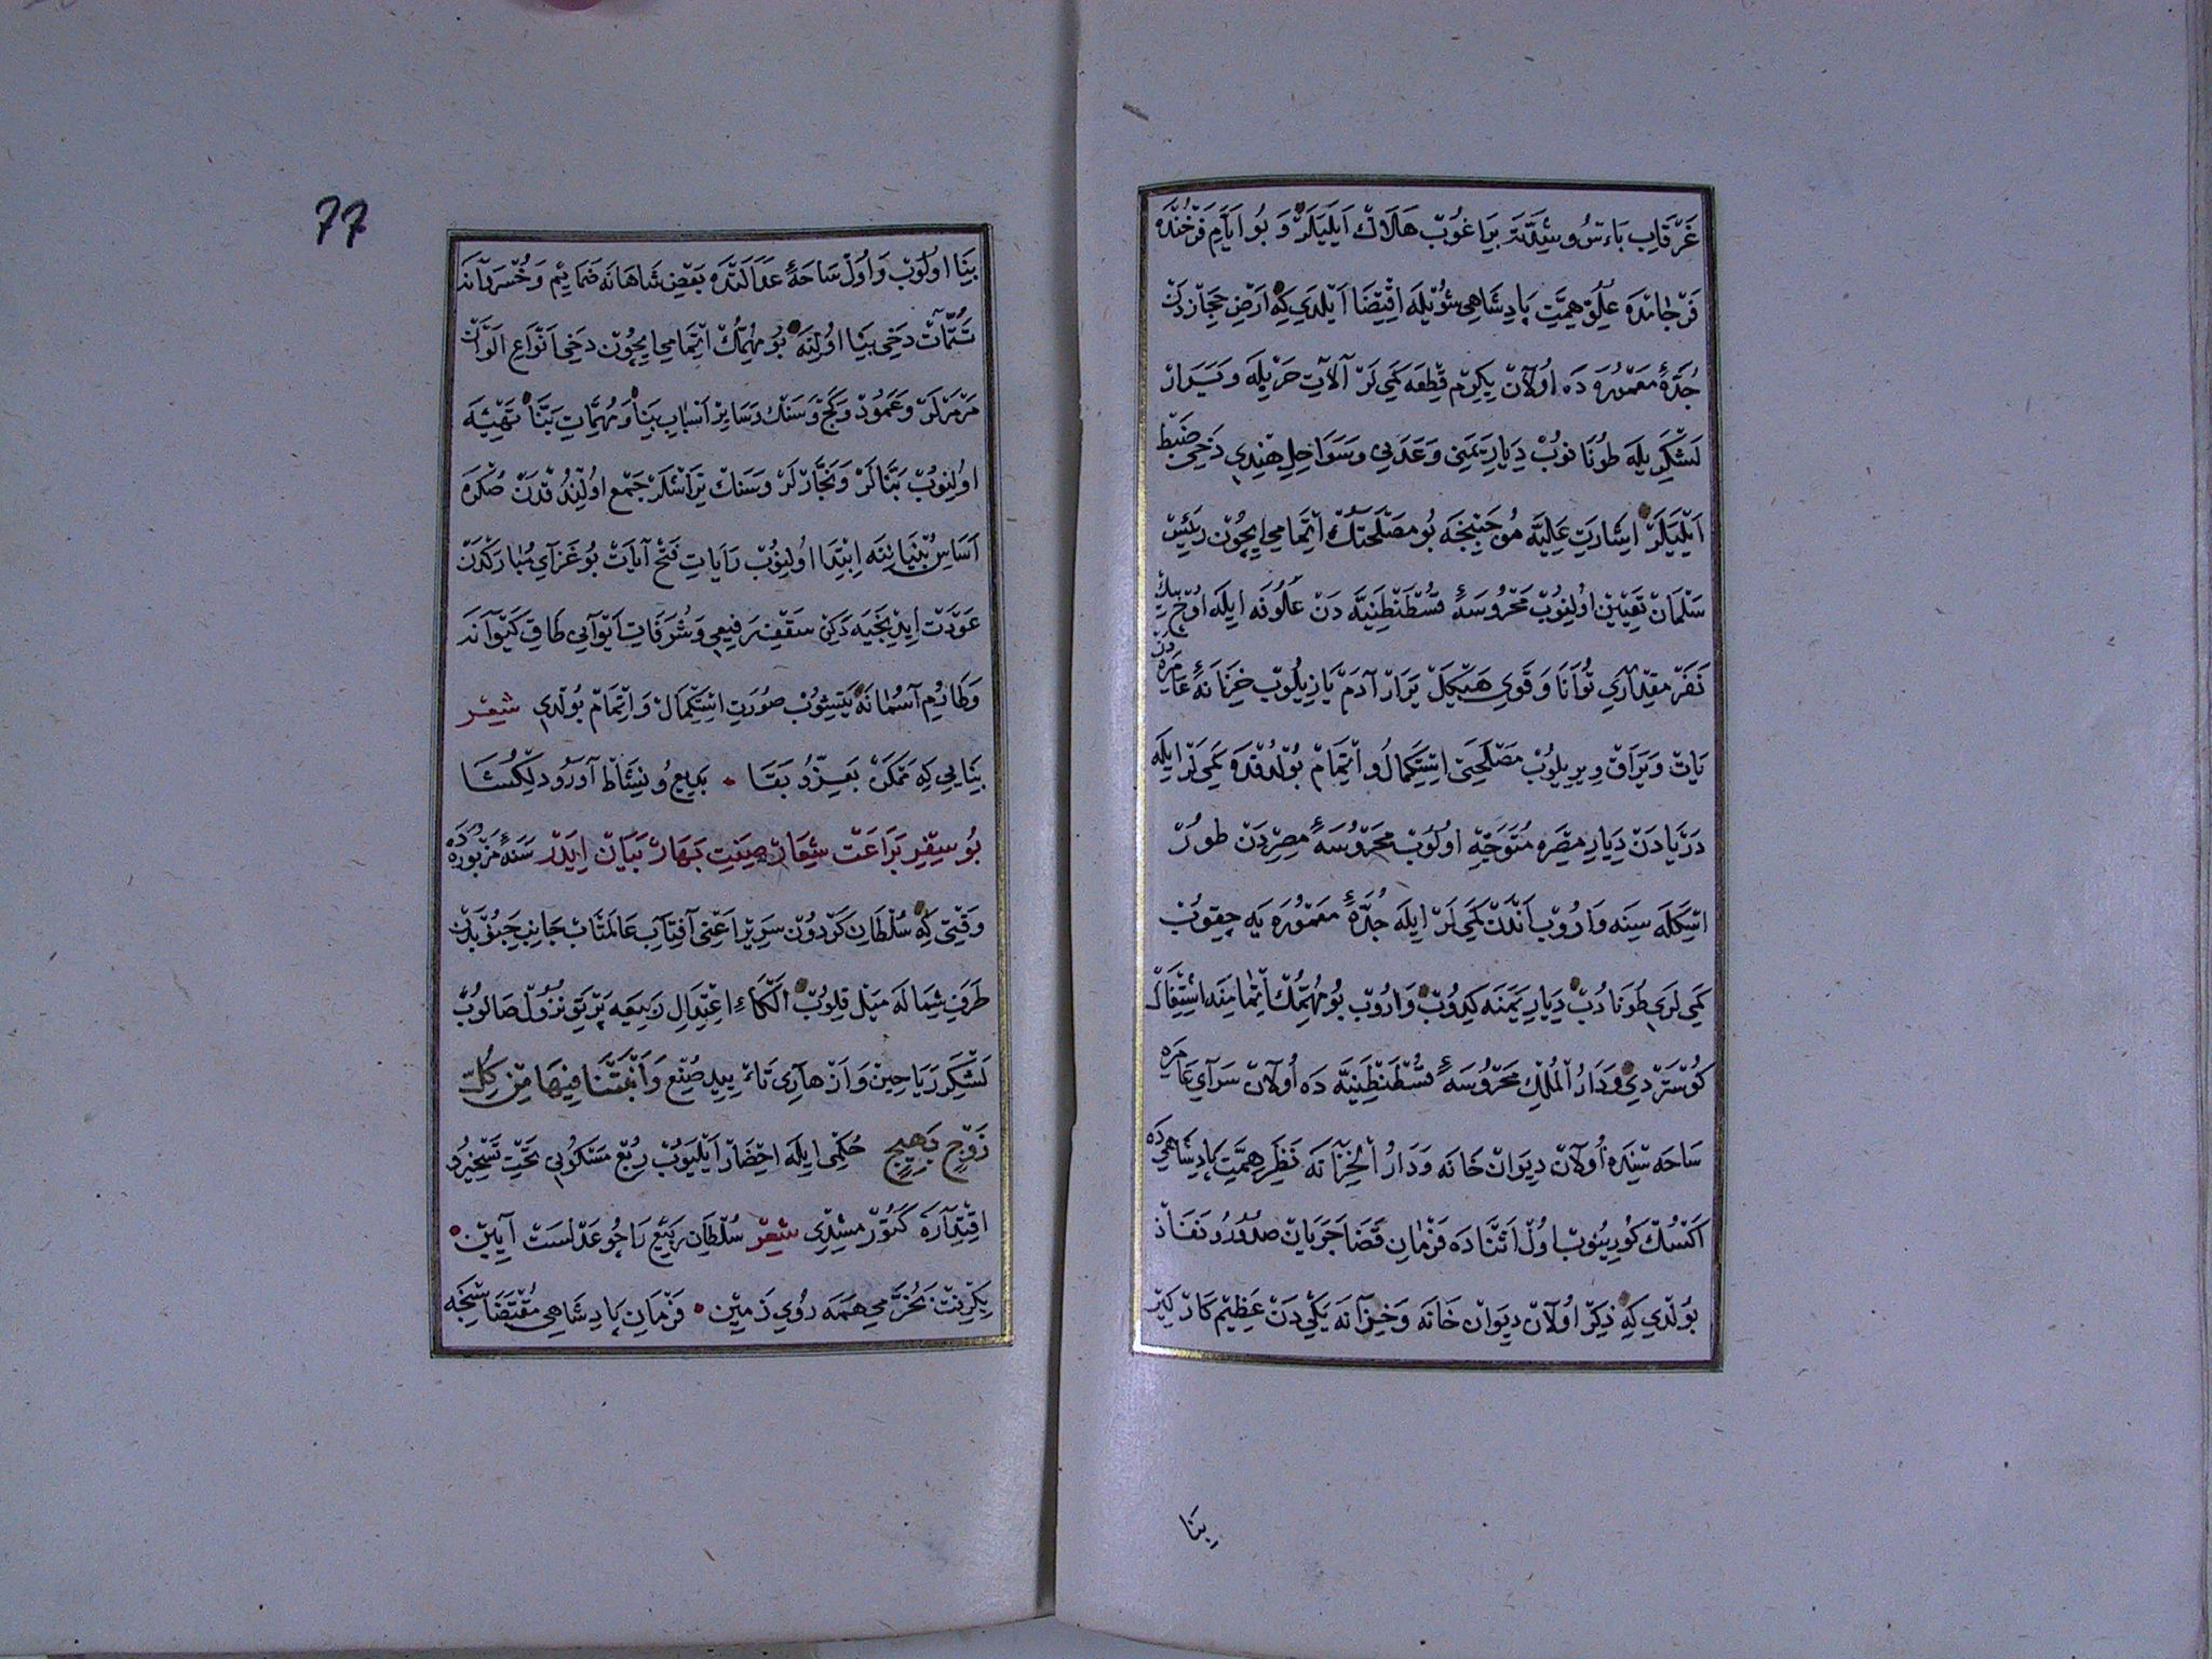 غَرْقَابِ بَاءْسُ و شِدَّتَه بِرَاغُوبْ هَلَاكْ اَيْلَيَلَرْ وَ بُو اَيَّامِ فَرْخُنْدَه
فَرْجَامْدَه عُلُوِّ هِمَّتِ پَادِشَاهِي شُوْيْلَه اقْتِضَا اَيْلَدِي كِه اَرْضِ حِجَازْدَنْ
جُدَّهٔ مَعْمُورَه دَه اُولَانْ يِكِرْمِ قِطْعَه كَمِي لَرْ آلَاتِ حَرْبْلَه وَ يَرَارْ
لَشْكَرِيلَه طُونَانوُبْ دِيَارِ يَمَنِي وَ عَدَنِي وَ سَوَاحِلِ هِنْدِي دَخِي ضَبْط
اَيْلَيَلَرْ اِشَارَتِ عَلِيَّه مُوجَبِنْجَه بُو مَصْلَحَتُكْ اِتْمَامِي اِيچُونْ رَئِيسْ
سَلْمَانْ تَعْيِينْ اوُلِنُوبْ مَحْرُوسَهٔ قُسْطَنْطِنِيَّه دَنْ عُلُوفَه اِيلَه اُوچْ بِيكْ
نَفَرْ مِقْدَارِي تُوَانَا وَ قَوِي هَيْكَلْ يَرَارْ آدَمْ يَازِيلُوبْ خِزَانَهٔ عَامِرَه دَنْ
يَاتْ وَ يَرَاقْ وِيرِيلُوبْ مَصْلَحَتِي اِسْتِكْمَالُ و اِتْمَامْ بُولْدُقْدَه كَمِي لَرْ اِيلَه
دَرْيَادَنْ دِيَارِ مِصْرَه مُتَوَجِّهْ اوُلُوبْ مَحْرُوسَهٔ مِصْرْدَنْ طورْ
اِسْكَلَه سِينَه وَارُوبْ اَنْدَنْ كَمِي لَرْ اِيلَه جُدَّهٔ مَعْمُورَه يَه چِقوُبْ
كَمِي لَرِي طُونَادُبْ دِيَارِ يَمَنَه كِيدُوبْ وَارُوبْ بُو مُهِمُّكْ اِتْمَامِنَه اِشْتِغَالْ
كُوسْتَرْدِي وَ دَارُ الْمُلْكِ مَحْرُوسَهٔ قُسْطَنْطِنِيَّه دَه اُولَانْ سَرَاي عَامِرَه
سَاحَه سِنْدَه اُولَانْ دِيوَانْ خَانَه وَ دَارُ الْخِزَانَه نَظَرِ هِمَّتِ پَادِشَاهِي دَه
اَكْسُكْ كُورِينُوبْ اوُلْ اَثْنَادَه فَرْمَانِ قَضَا جَرَيَانْ صُدُورُ و نَفَاذْ
بُولْدِي كِه ذِكْرْ اوُلَانْ دِيوَانْ خَانَه وَ خِزَانَه يَكِي دَنْ عَظِيمْ كَارْكِيرْ
بِنَا
77
بِنَا اوُلُوبْ وَ اُولْ سَاحَهٔ عَدَالَتْدَه بَعْضِ شَاهَانَه ضَمَايِمْ وَ خُسْرَوَانَه
تَتِمَّاتْ دَخِي بِنَا اوُلِنَه بُو مُهِمُّكْ اِتْمَامِي اِيچُونْ دَخِي اَنْوَاعِ اَلْوَانْ
مَرْمَرْلَرْ وَ عَمُودْ وَ كَجْ وَ سَنْكْ وَ سَايِرْ اَسْبَابِ بِنَا وَ مُهِمَّاتِ بَنَّا تَهْيِئَه
اوُلِنُوبْ بَنَّالَرْ وَ نَجَّارْلَرْ وَ سَنْكْ تِرَاشْلَرْ جَمْع اوُلِنْدُقْدَنْ صُكْرَه
اَسَاسِ بُنْيَانِنَه اِبْتِدَا اوُلِنُوبْ رَايَاتِ فَتْح آيَاتْ بُو غَزَايِ مُبَارَكْدَنْ
عَوْدَتْ اِيدِنْجَيَه دَكِنْ سَقْفِ رَفِيعِي وَ شُرَفَاتِ اَيْوَانِي طَاقِ كَيْوَانَه
وَ طَارُمِ آسُمَانَه يَتِيشُوبْ صُورَتِ اِسْتِكْمَالْ وَ اِتْمَامْ بُولْدِي شِعْر
بِنَايِي كِه مُمْكَنْ بَعِزُّ و بَقَا • بَدِيعُ و نِشَاطْ آوَرُو دِلْكُشَا
بُو سِفْرِ بَرَاعَتْ شِعَارْ صِفَتِ بَهَارْ بَيَانْ اِيدَرْ سَنَهٔ مَزْبُورَه دَه
وَقْتِي كِه سُلْطَانِ كَرْدُونْ سَرِيرْ اَعْنِي آفِتَابِ عَالَمْتَابْ جَانِبِ جَنُوبْدَنْ
طَرَفِ شِمَالَه مَيْل قِلُوبْ اِعْتِدَالِ رَبِيعَه پَرْتَوِ نُزُولْ صَالُوبْ
لَشْكَرِ رَيَاحِينْ وَ اَزْهَارِي صُنْعِ وَاَنْبَتْنَا فِيهَا مِنْ كُلِّ
زَوْجٍ بَهِيجٍ حُكْمِي اِيلَه اِحْضَارْ اَيْلَيُوبْ رُبْعِ مَسْكُونِي تَحْتِ تَسْخِيرُ و
اقْتِدَارَه كَتُورْمِشِدِي شِعْرْ سُلْطَانِ رَبِيعْ رَا چُو عَدْلَسْتْ آيِينْ •
بِكِرِفْتْ بَخُرَّمِي هَمَه رُويِ زَمِينْ • فَرْمَانِ پَادِشَاهِي مُقْتَضَاسِنْجَه